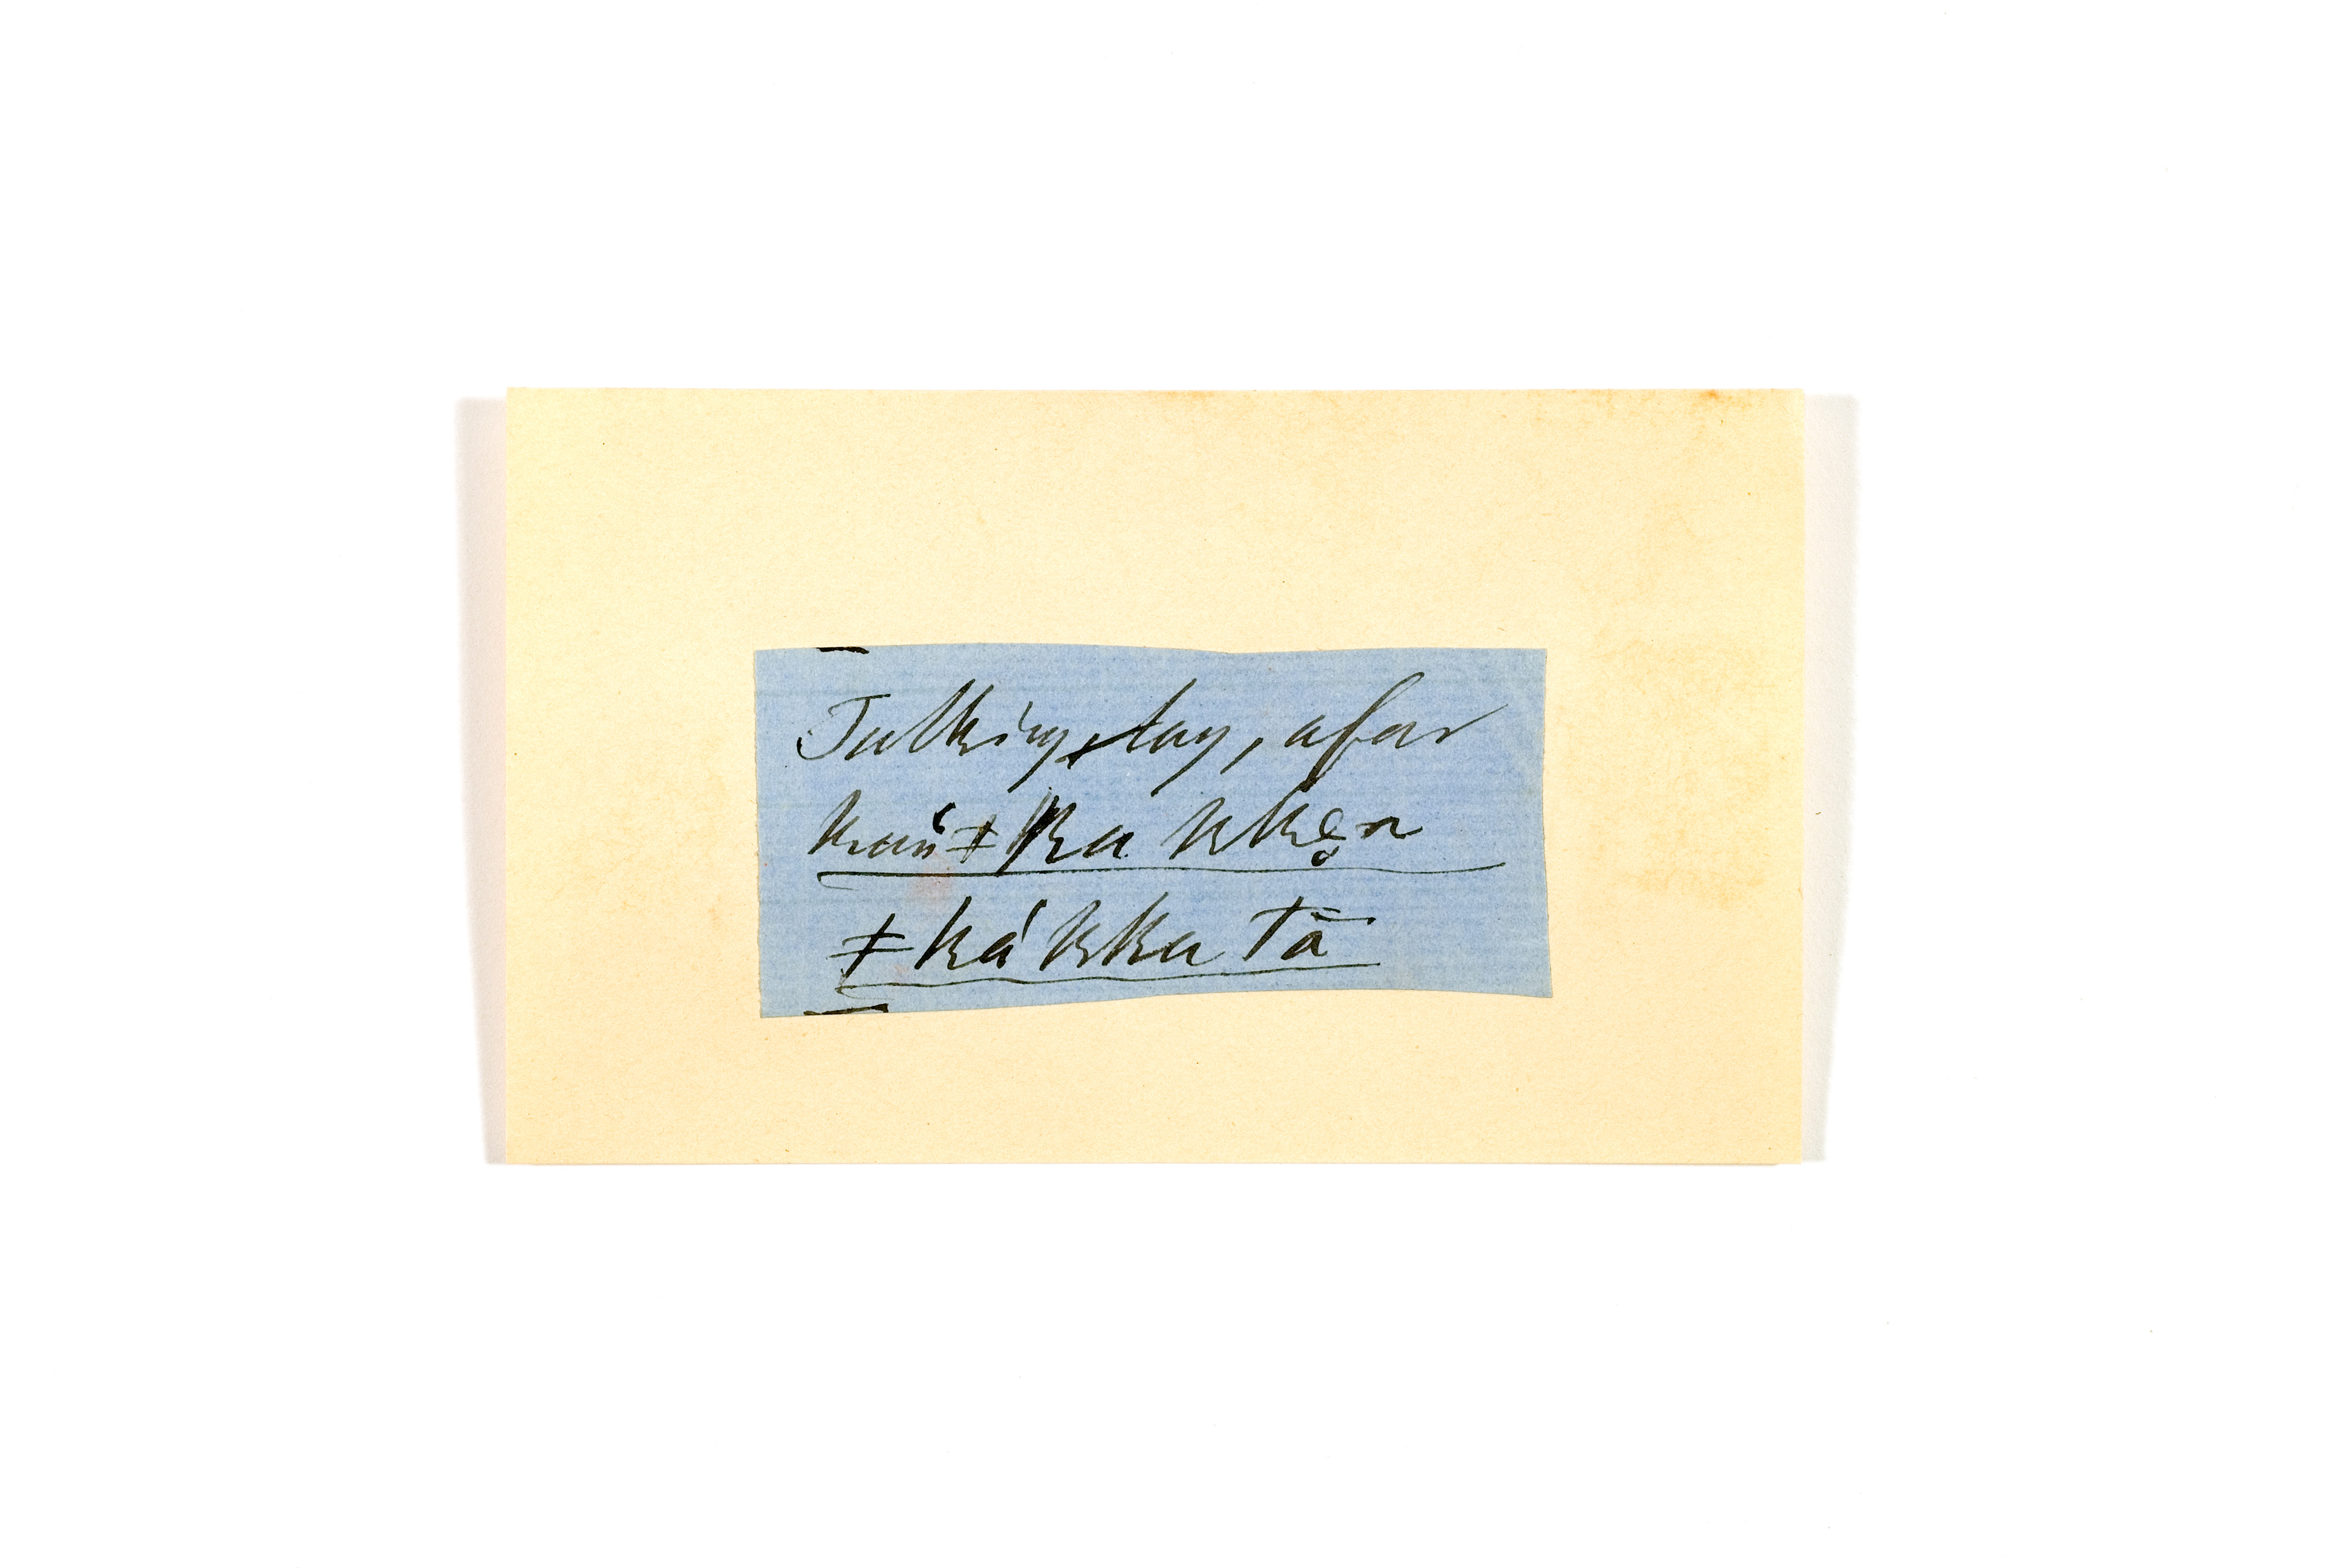 Talking, lay, afar
kań ǂka kken̥
ǂká kka tā